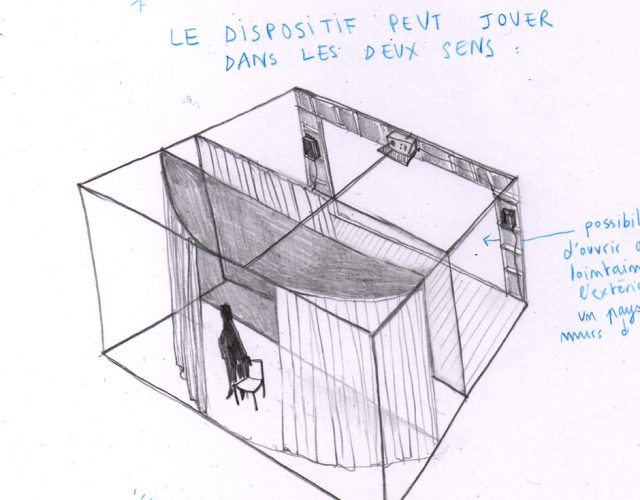 LE DISPOSITIF PEUT JOUER
DANS LES DEUX SENS :
possibil
d'ouvrir
lointain
l'extéri
un pays
murs d'